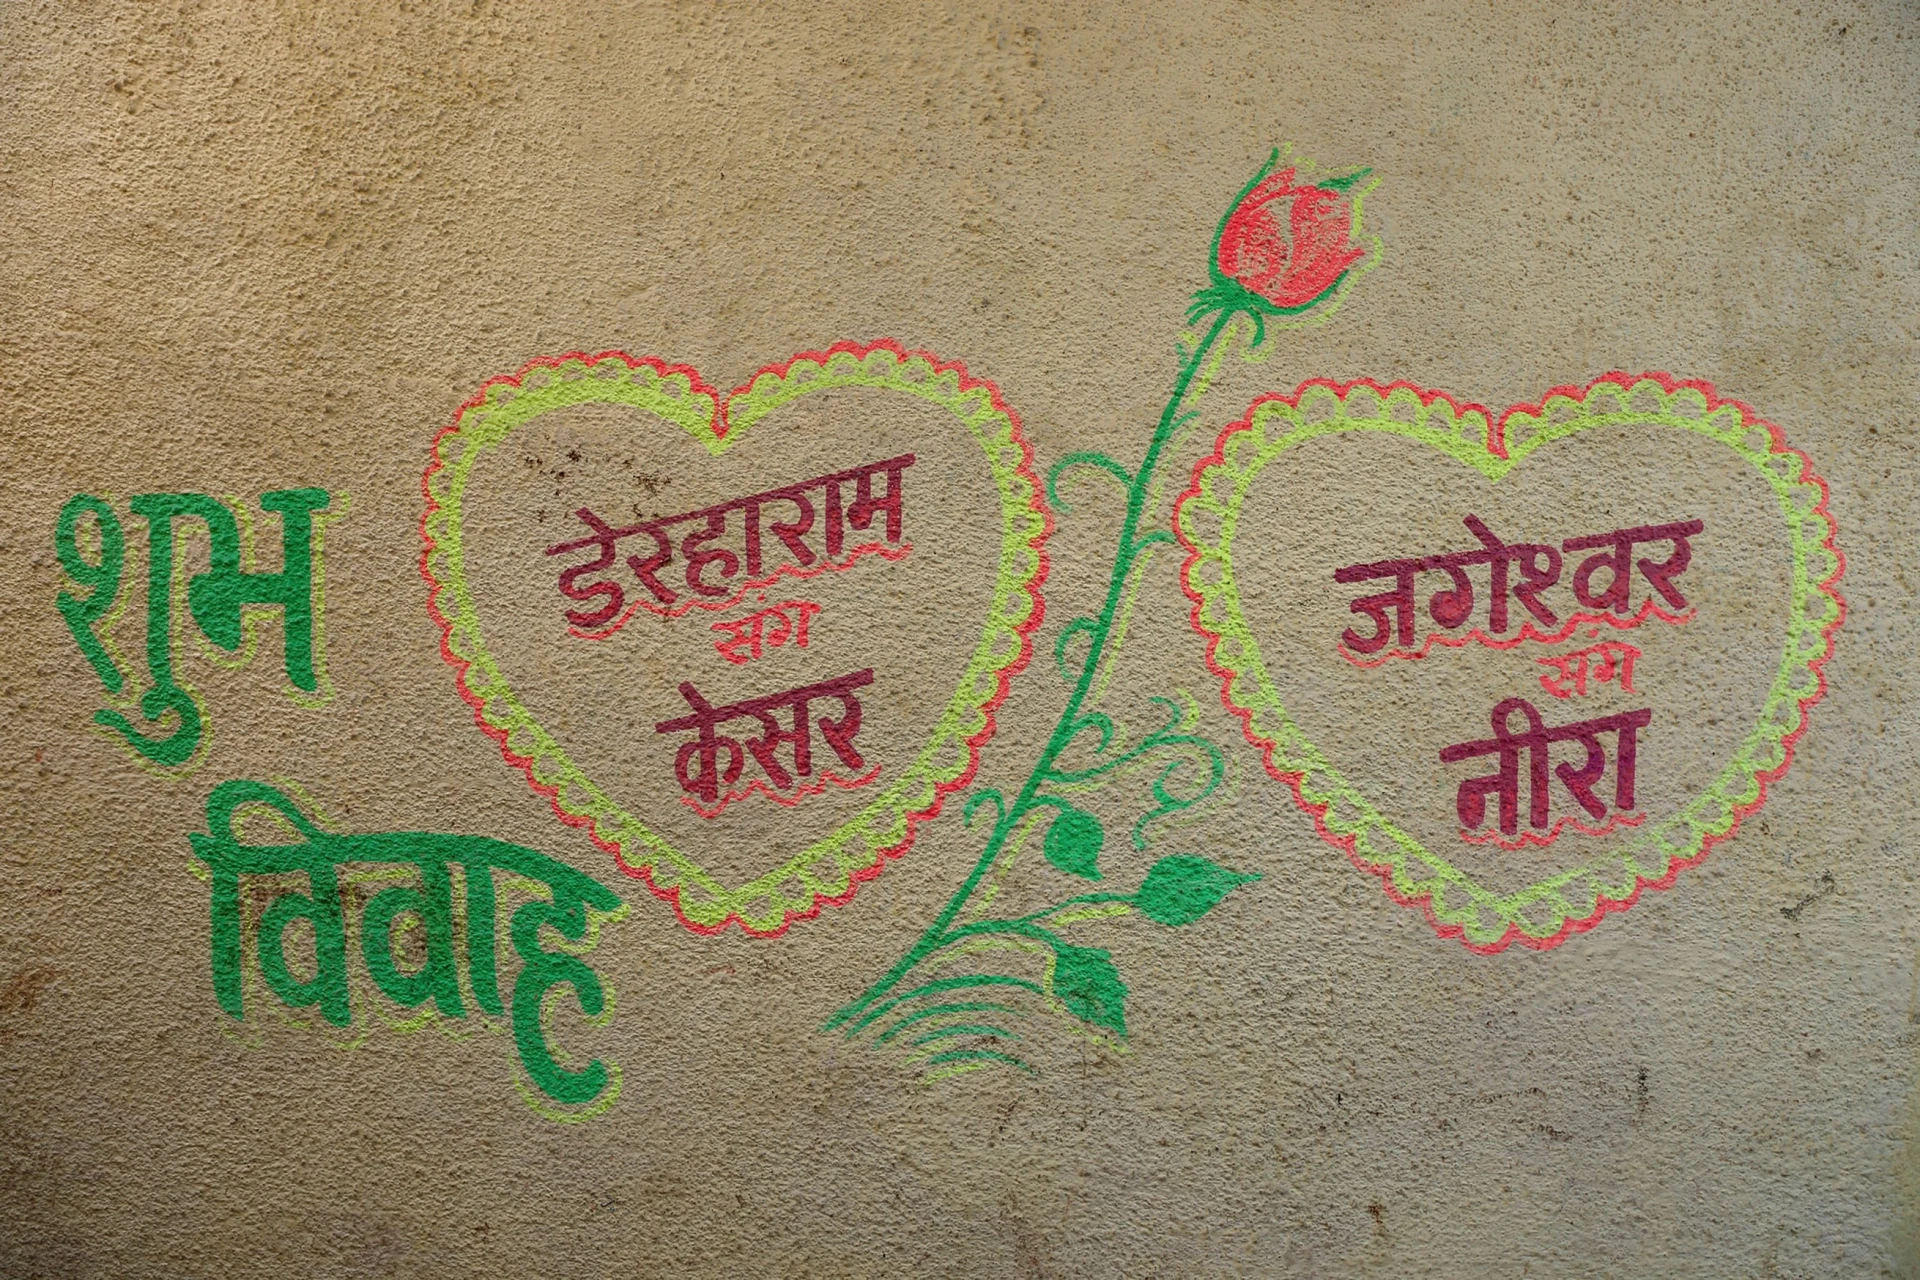 शुभ
विवाह
डेरहाराम
संग
केसर
जगेश्वर
संग
नीरा